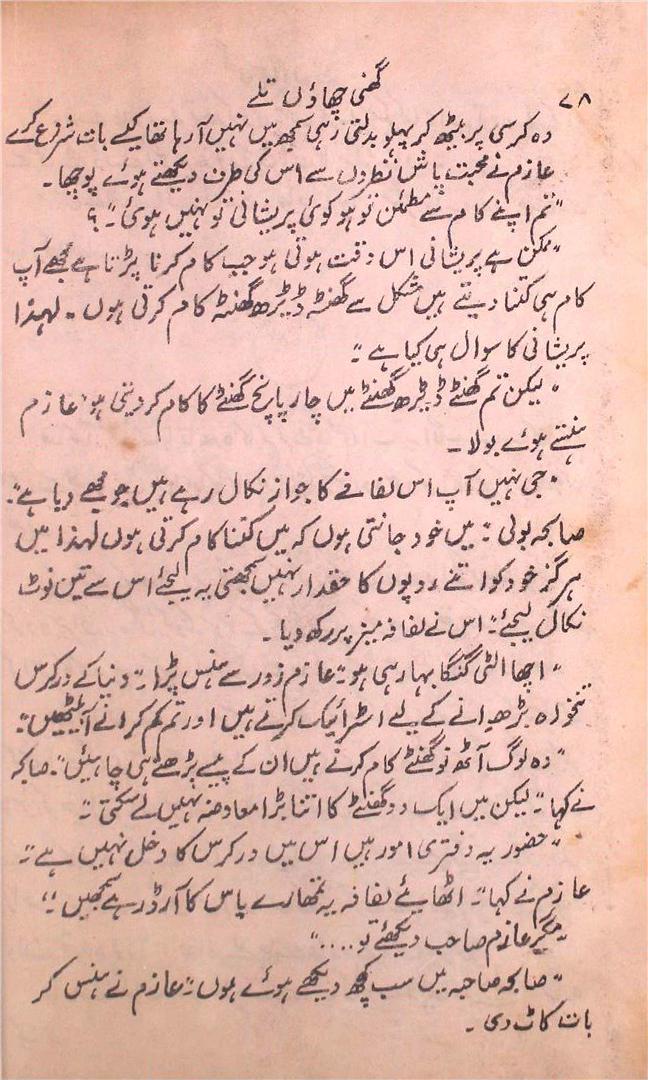 ۷۸
گھنی چھاؤں تلے
وہ کرسی پر بیٹھ کر پہلو بدلتی رہی سمجھ میں نہیں آ رہا تھا کیسے بات شروع کرے
عازم نے محبت پاش نظروں سے اس کی طرف دیکھتے ہوئے پوچھا۔
"تم اپنے کام سے مطمئن تو ہو کوئی پریشانی تو نہیں ہوئی۔" ؟
"ممکن ہے پریشانی اس وقت ہوتی ہو جب کام کرنا پڑتا ہے مجھے آپ
کام ہی کتنا دیتے ہیں مشکل سے گھنٹہ ڈیڑھ گھنٹہ کام کرتی ہوں۔ لہذا
پریشانی کا سوال ہی کیا ہے۔"
"لیکن تم گھنٹے ڈیڑھ گھنٹے میں چار پانچ گھنٹے کا کام کر دیتی ہو" عازم
ہنستے ہوئے بولا۔
"جی نہیں آپ اس لفافے کا جواز نکال رہے ہیں جو مجھے دیا ہے"۔
صابحہ بولی "میں خود جانتی ہوں کہ میں کتنا کام کرتی ہوں لہذا میں
ہرگز خود کو اتنے روپوں کا حقدار نہیں سمجھتی یہ لیجئے اس سے تین نوٹ
نکال لیجئے" اس نے لفافہ میز پر رکھ دیا۔
"اچھا الٹی گنگا بہا رہی ہو" عازم زور سے ہنس پڑا۔ "دنیا کے ورکرس
تنخواہ بڑھوانے کے لیے اسٹرائیک کرتے ہیں اور تم کم کرانے آ بیٹھیں"۔
"وہ لوگ آٹھ نو گھنٹے کام کرتے ہیں ان کے پیسے بڑھتے ہی چاہئیں"۔ صابحہ
نے کہا "لیکن میں ایک دو گھنٹے کا اتنا بڑا معاوضہ نہیں لے سکتی۔"
"حضور یہ دفتری امور ہیں اس میں ورکرس کا دخل نہیں ہے۔"
عازم نے کہا "اٹھایئے لفافہ یہ تمھارے باس کا آرڈر ہے سمجھیں"؛
"مگر عازم صاحب دیکھئے تو...."
"صابحہ صاحبہ میں سب کچھ دیکھے ہوئے ہوں" عازم نے ہنس کر
بات کاٹ دی۔